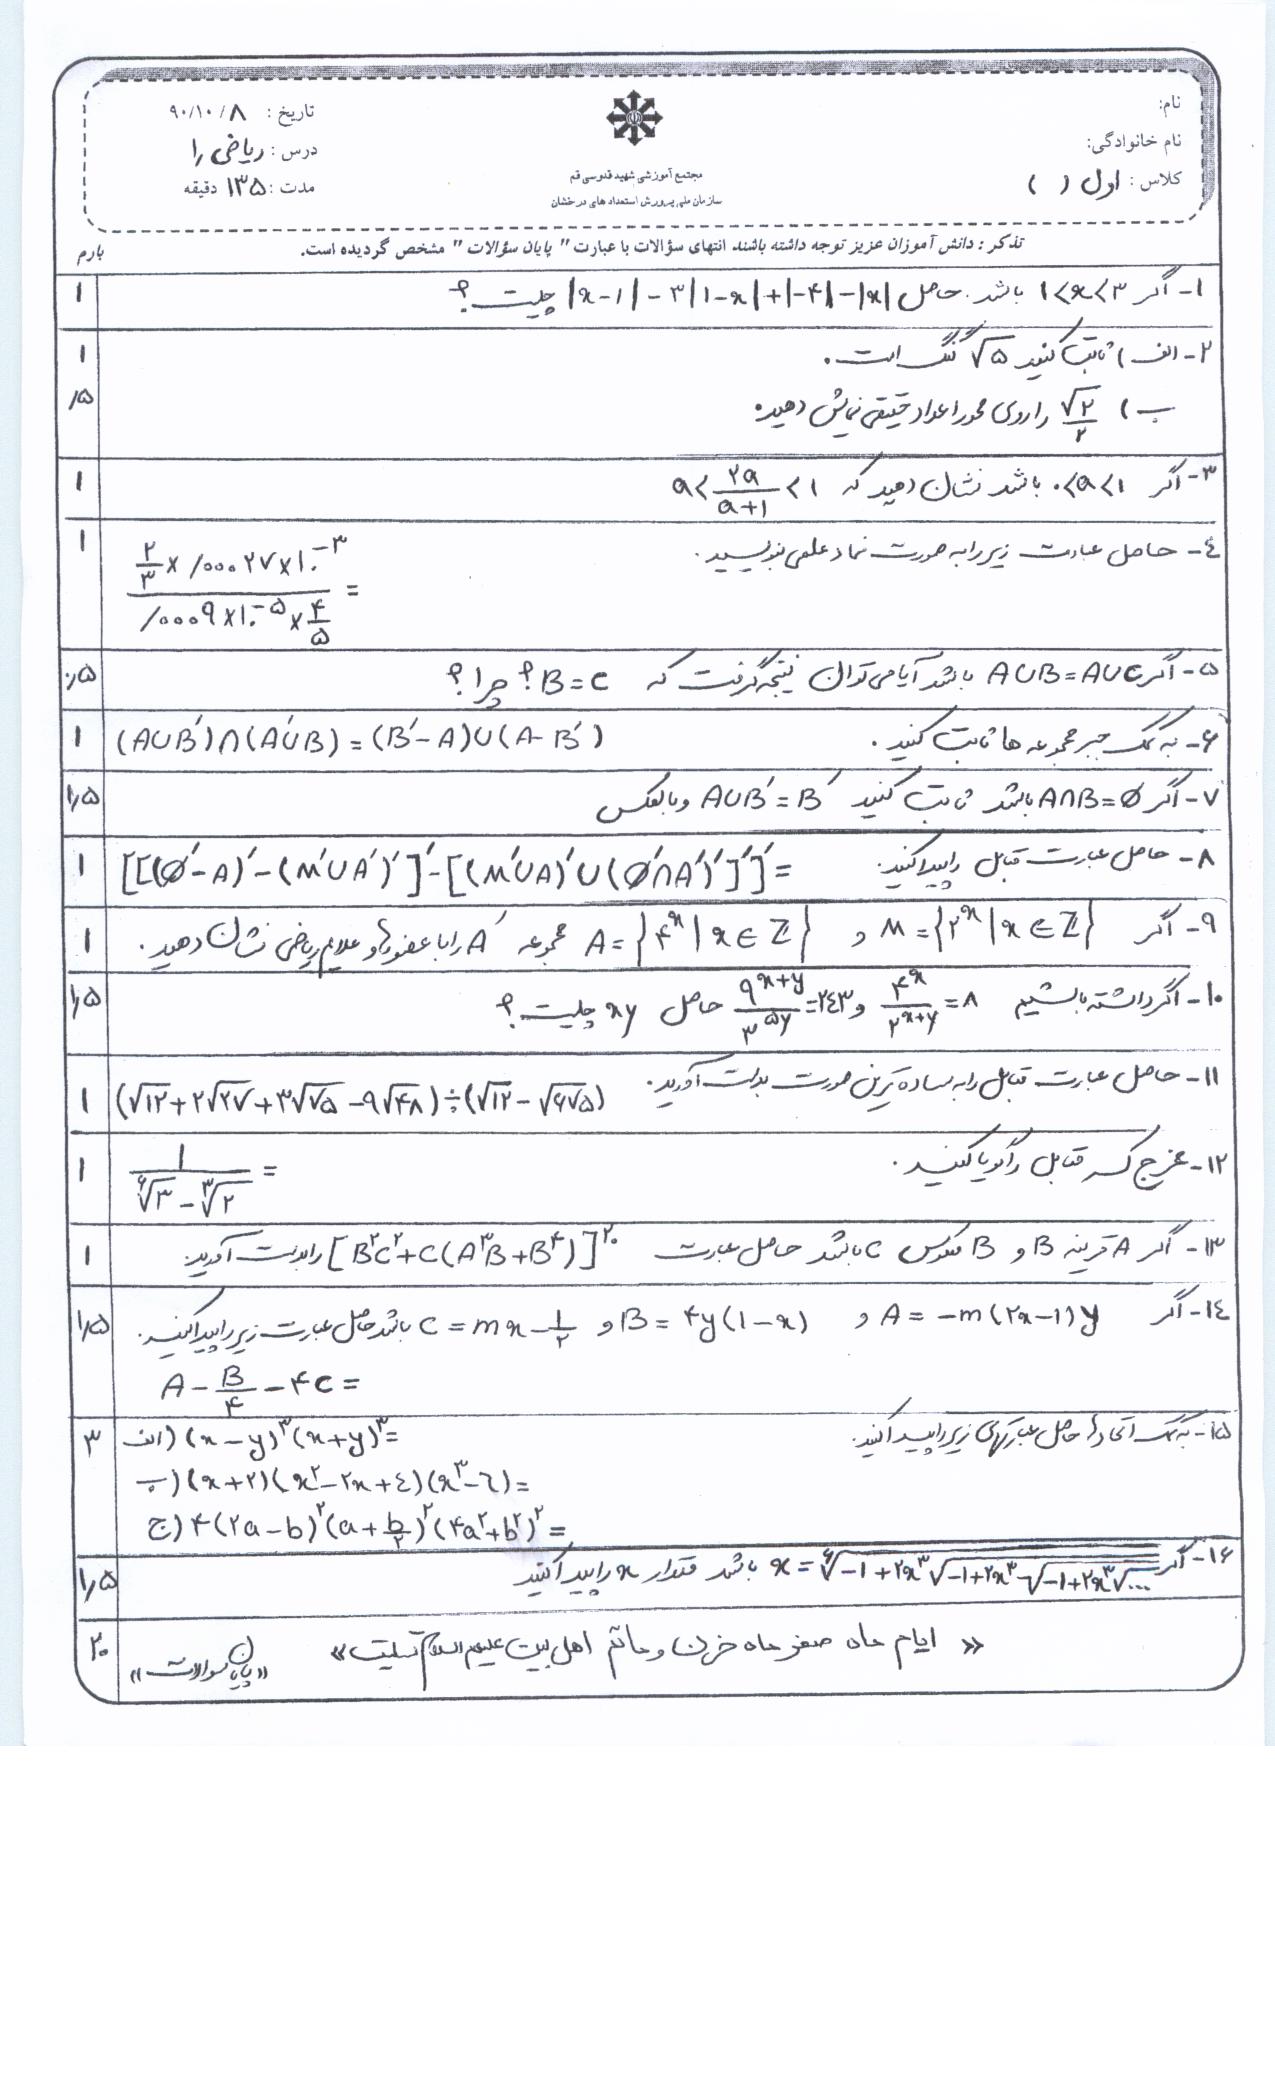 نام:
نام خانوادگی:
کلاس : اول ( )
مجتمع آموزشی شهید قدوسی قم
سازمان ملی پرورش استعدادهای درخشان
تاریخ : ۹۰/۱۰/۸
درس : ریاضی ۱
مدت : ۱۳۵ دقیقه
تذکر : دانش آموزان عزیز توجه داشته باشند انتهای سؤالات با عبارت " پایان سؤالات " مشخص گردیده است. بارم
۱- اگر ۱<x<۳ باشد. حاصل |x-۱| - ۳|۱-x| + |-۴| - |x| چیست؟ ۱
۲- الف) ثابت کنید √۵ گنگ است. ۱
ب) √۲/۲ را روی محور اعداد حقیقی نمایش دهید. /۵
۳- اگر ۰<a<۱ باشد نشان دهید که a < ۲a/(a+۱) < ۱ ۱
٤- حاصل عبارت زیر را به صورت نماد علمی بنویسید. (۲/۳ × /۰۰۰۲۷ × ۱۰⁻³) / (/۰۰۰۹ × ۱۰⁻⁵ × ۴/۵) = ۱
۵- اگر A∪B = A∪C باشد آیا می توان نتیجه گرفت که B = C؟ چرا؟ ۰/۵
۶- به کمک جبر مجموعه ها ثابت کنید. (A∪B′)∩(A′∪B) = (B′-A)∪(A-B′) ۱
۷- اگر A∩B = ∅ باشد ثابت کنید A∪B′ = B′ و بالعکس ۱/۵
۸- حاصل عبارت مقابل را پیدا کنید. [[(∅′-A)′-(M′∪A′)′]′-[(M′∪A)′∪(∅′∩A′)′]′]′ = ۱
۹- اگر M = {۲ˣ | x∈Z} و A = {۴ˣ | x∈Z} مجموعه A′ را با عضوها و علایم ریاضی نشان دهید. ۱
۱۰- اگر داشته باشیم ۴ˣ/۲ˣ⁺ʸ = ۸ و ۹ˣ⁺ʸ/۳⁵ʸ = ۲٤۳ حاصل xy چیست؟ ۱/۵
۱۱- حاصل عبارت مقابل را به ساده ترین صورت بدست آورید. (√۱۲ + ۲√۲۷ + ۳√۷۵ - ۹√۴۸) ÷ (√۱۲ - √۶۷۵) ۱
۱۲- مخرج کسر مقابل را گویا کنید. ۱/(⁶√۳ - ³√۲) = ۱
۱۳- اگر A قرینه B و B معکوس C باشد حاصل عبارت [B²C² + C(A³B + B⁴)]²⁰ را بدست آورید. ۱
۱٤- اگر A = -m(۲x-۱)y و B = ۴y(۱-x) و C = mx - ۱/۲ باشد حاصل عبارت زیر را پیدا کنید. ۱/۵
A - B/۴ - ۴C =
۱۵- به کمک اتحادها حاصل عبارتهای زیر را پیدا کنید. ۳
الف) (x-y)³(x+y)³ =
ب) (x+۲)(x²-۲x+٤)(x³-٦) =
ج) ۴(۲a-b)²(a+b/۲)²(۴a²+b²)² =
۱۶- اگر x = ⁶√(-۱+۲x³√(-۱+۲x³√(-۱+۲x³√...))) باشد مقدار x را پیدا کنید ۱/۵
« ایام ماه صفر ماه حزن و ماتم اهل بیت علیهم السلام تسلیت » « پایان سوالات » ۲۰